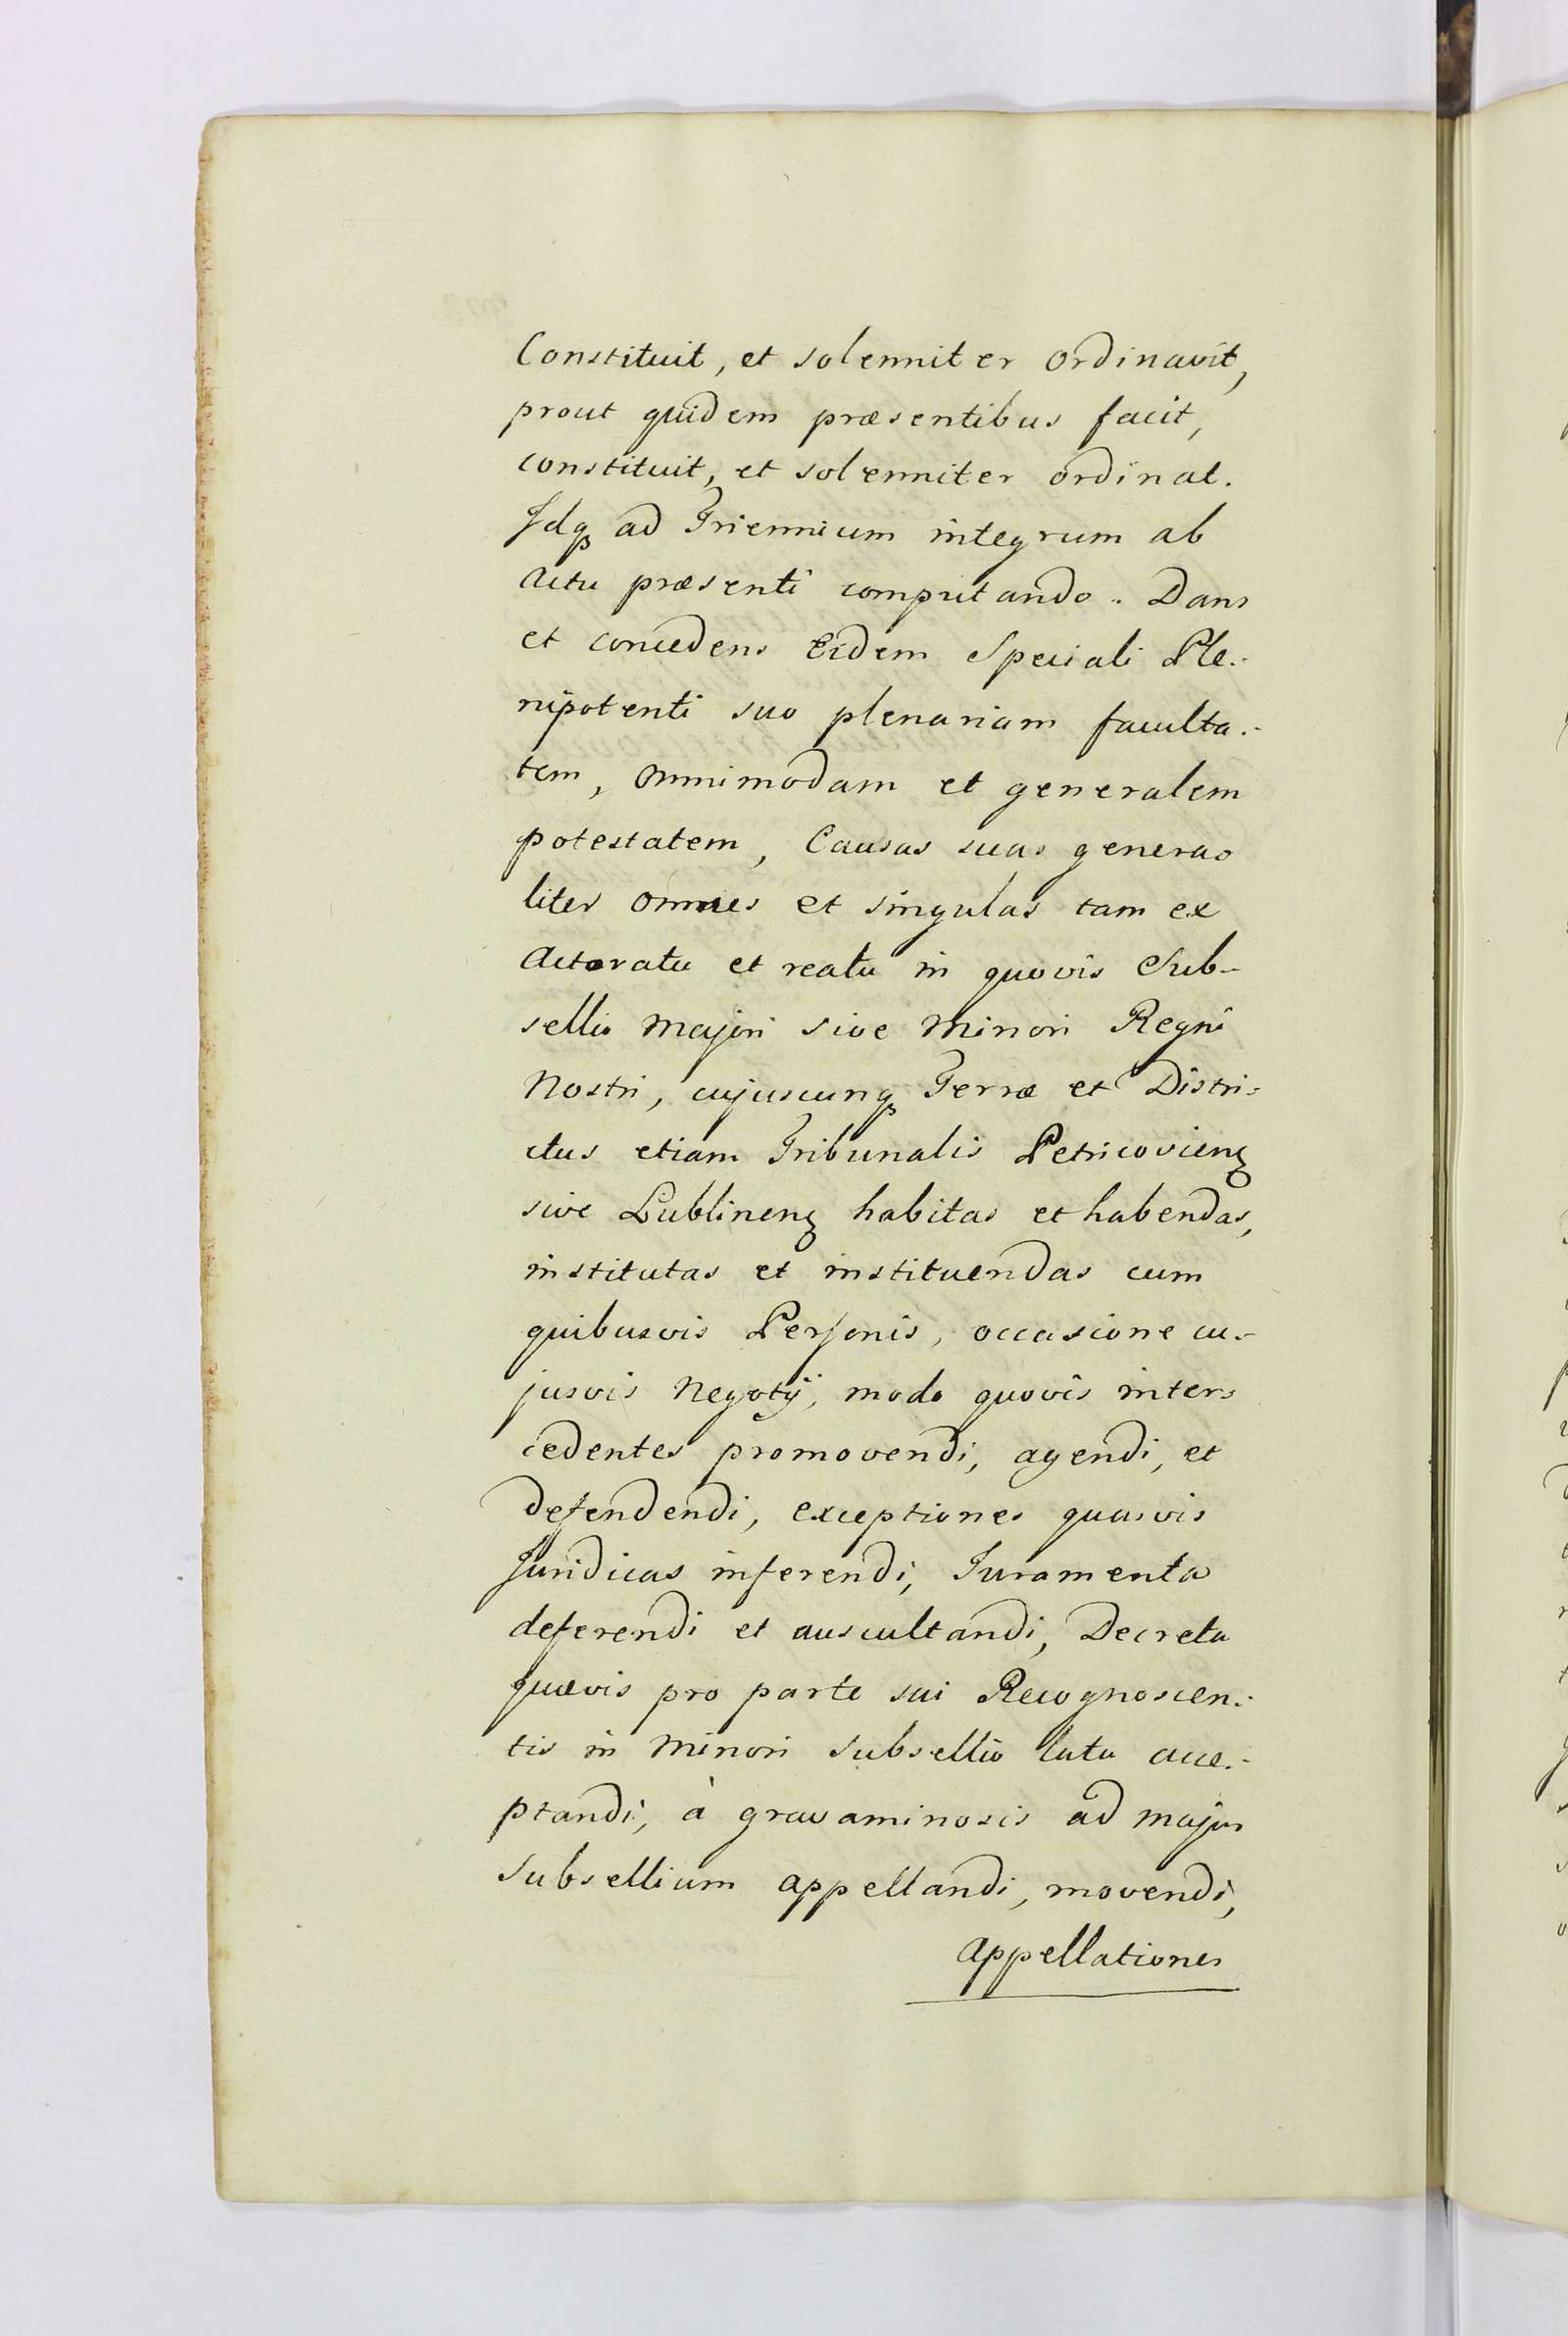 Constituit, et solenniter ordinavit,
prout quidem præsentibus facit,
constituit, et solenniter ordinat.
Idqꝫ ad Triennium integrum ab
actu præsenti computando. Dans
et concedens Eidem Speciali Ple-
nipotenti suo plenariam faculta-
tem, omnimodam et generalem
potestatem, Causas suas genera-
liter omnes et singulas tam ex
Actoratu et reatu in quovis Sub-
sellio Majori sive Minori Regni
Nostri, cujuscunqꝫ Terræ et Distri-
ctus etiam Tribunalis Petricovienꝫ
sive Lublinenꝫ habitas et habendas,
institutas et instituendas cum
quibusvis Personis, occasione cu-
jusvis Negotÿ, modo quovis inter-
cedentes promovendi, agendi, et
defendendi, exceptiones quasvis
Juridicas inferendi, Juramenta
deferendi et auscultandi, Decreta
quævis pro parte sui Recognoscen-
tis in Minori Subsellio lata acce-
ptandi, à gravaminosis ad majus
Subsellium appellandi, movendi,
appellationes